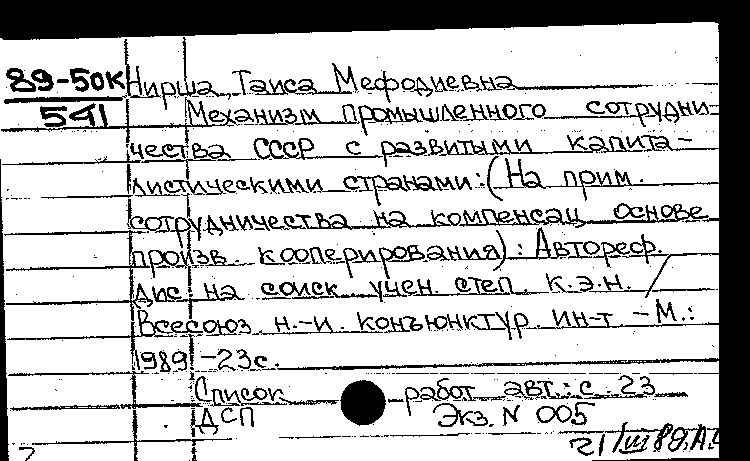 89-50К Нирша, Таиса Мефодиевна
541 Механизм промышленного сотрудни-
чества СССР с развитыми капита-
листическими странами: (На прим.
сотрудничества на компенсац. основе
произв. кооперирования): Автореф.
дис. на соиск. учен. степ. к.э.н. /
Всесоюз. н.-и. конъюнктур. ин-т. - М.:
1989 - 23с.
Список работ авт.: с. 23
ДСП Экз. N 005
21/III 89.